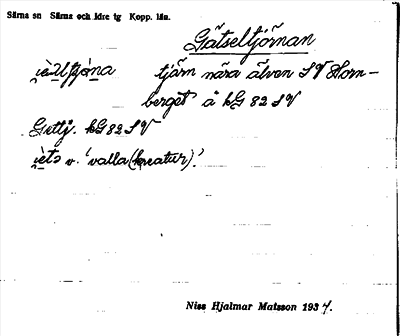 Särna sn Särna och Idre tg Kopp. län.
Gätseltjörnan
tjärn nära älven SV Horn-
berget å kG 82 SV
Gettj. kG 82 SV
v. 'valla (kreatur)'.
Nils Hjalmar Matsson 1937.